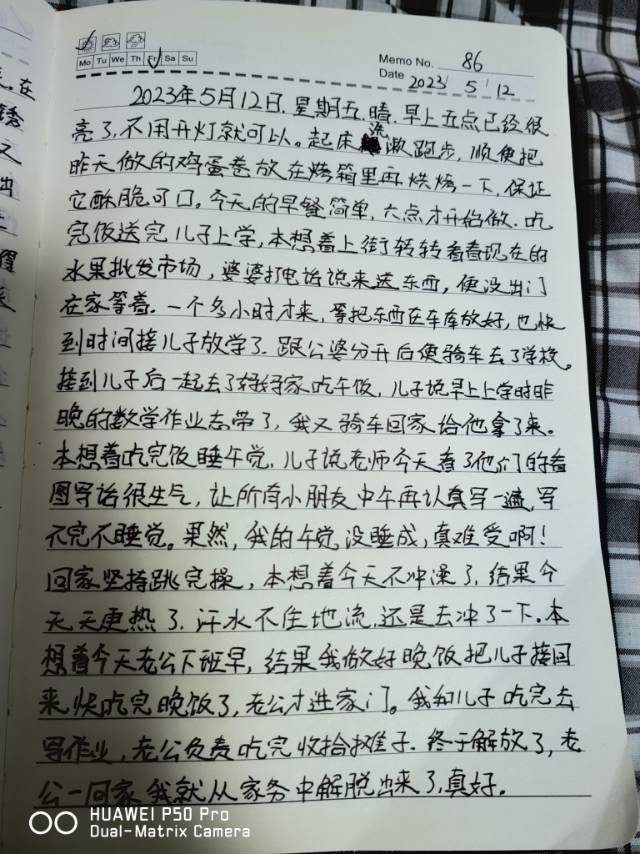 Mo Tu We Th Fr Sa Su
Memo No. 86
Date 2023 / 5 / 12
2023年5月12日.星期五.晴.早上五点已经很
亮了,不用开灯就可以。起床洗漱跑步,顺便把
昨天做的鸡蛋卷放在烤箱里再烘烤一下,保证
它酥脆可口。今天的早餐简单,六点才开始做.吃
完饭送完儿子上学,本想着上街转转看看现在的
水果批发市场,婆婆打电话说来送东西,便没出门
在家等着.一个多小时才来,等把东西在车库放好,也快
到时间接儿子放学了.跟公婆分开后便骑车去了学校。
接到儿子后一起去了好好家吃午饭,儿子说早上上学时昨
晚的数学作业忘带了,我又骑车回家给他拿了来。
本想着吃完饭睡午觉.儿子说老师今天看了他们的看
图写话很生气,让所有小朋友中午再认真写一遍,写
不完不睡觉。果然,我的午觉没睡成,真难受啊!
回家坚持跳完操,本想着今天不冲澡了,结果今
天天更热了.汗水不住地流,还是去冲了一下。本
想着今天老公下班早,结果我做好晚饭把儿子接回
来快吃完晚饭了,老公才进家门。我和儿子吃完去
写作业,老公负责吃完收拾摊子.终于解放了,老
公一回家我就从家务中解脱出来了,真好.
HUAWEI P50 Pro
Dual-Matrix Camera